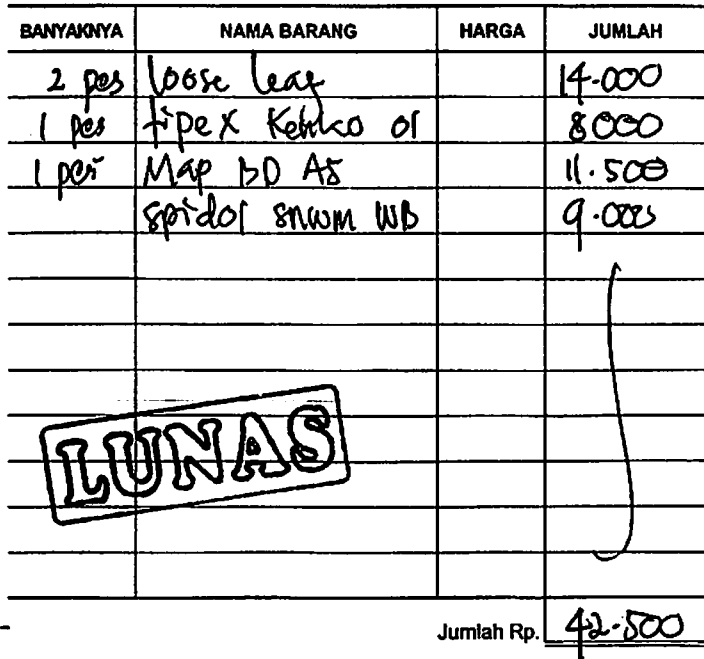 BANYAKNYA NAMA BARANG HARGA JUMLAH
2 pcs loose leaf 14.000
1 pcs tipex Kenko 01 8000
1 pcs Map BD A5 11.500
spidol snowm WB 9.000
LUNAS
Jumlah Rp. 42.500